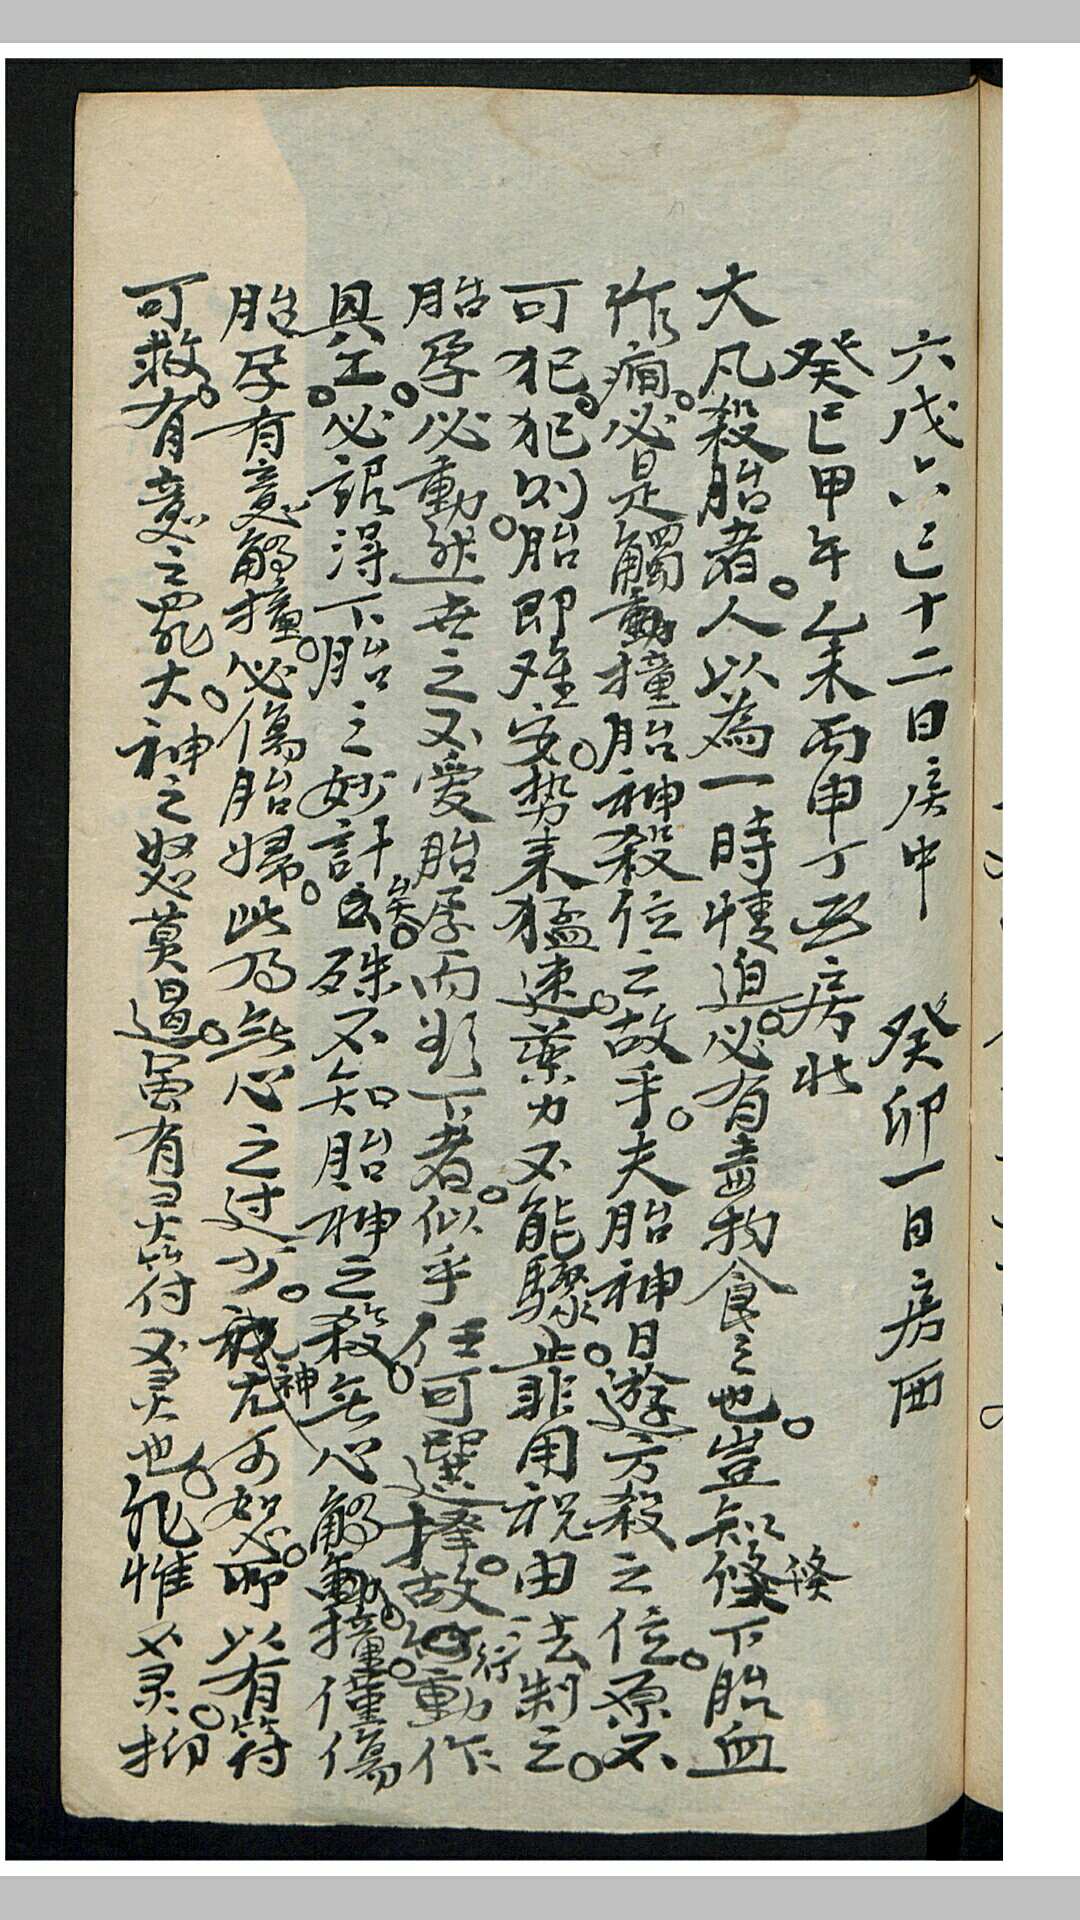 六戊六己十二日房中 癸卯一日房西
癸巳甲午乙未丙申丁酉房北
大凡殺胎者。人以為一時情迫。必有毒物食之也。豈知倏下胎血
作痛。必是觸動撞胎神殺位之故乎。夫胎神日遊方殺之位。原不
可犯。犯則胎即难安。势来猛速。藥力不能驟止。非用祝由法制之。
胎孕必動。然世之不愛胎孕而欲下者。似乎任可選擇。故行動作
具工。必說得下胎之妙計矣。殊不知胎神之殺。無心觸動撞。僅傷
胎孕有意觸撞。必傷胎婦。此乃無心之过少。神尤可恕。所以有符
可救。有意之罪大。神之怒莫遏。虽有灵符不灵也。非惟不灵。抑